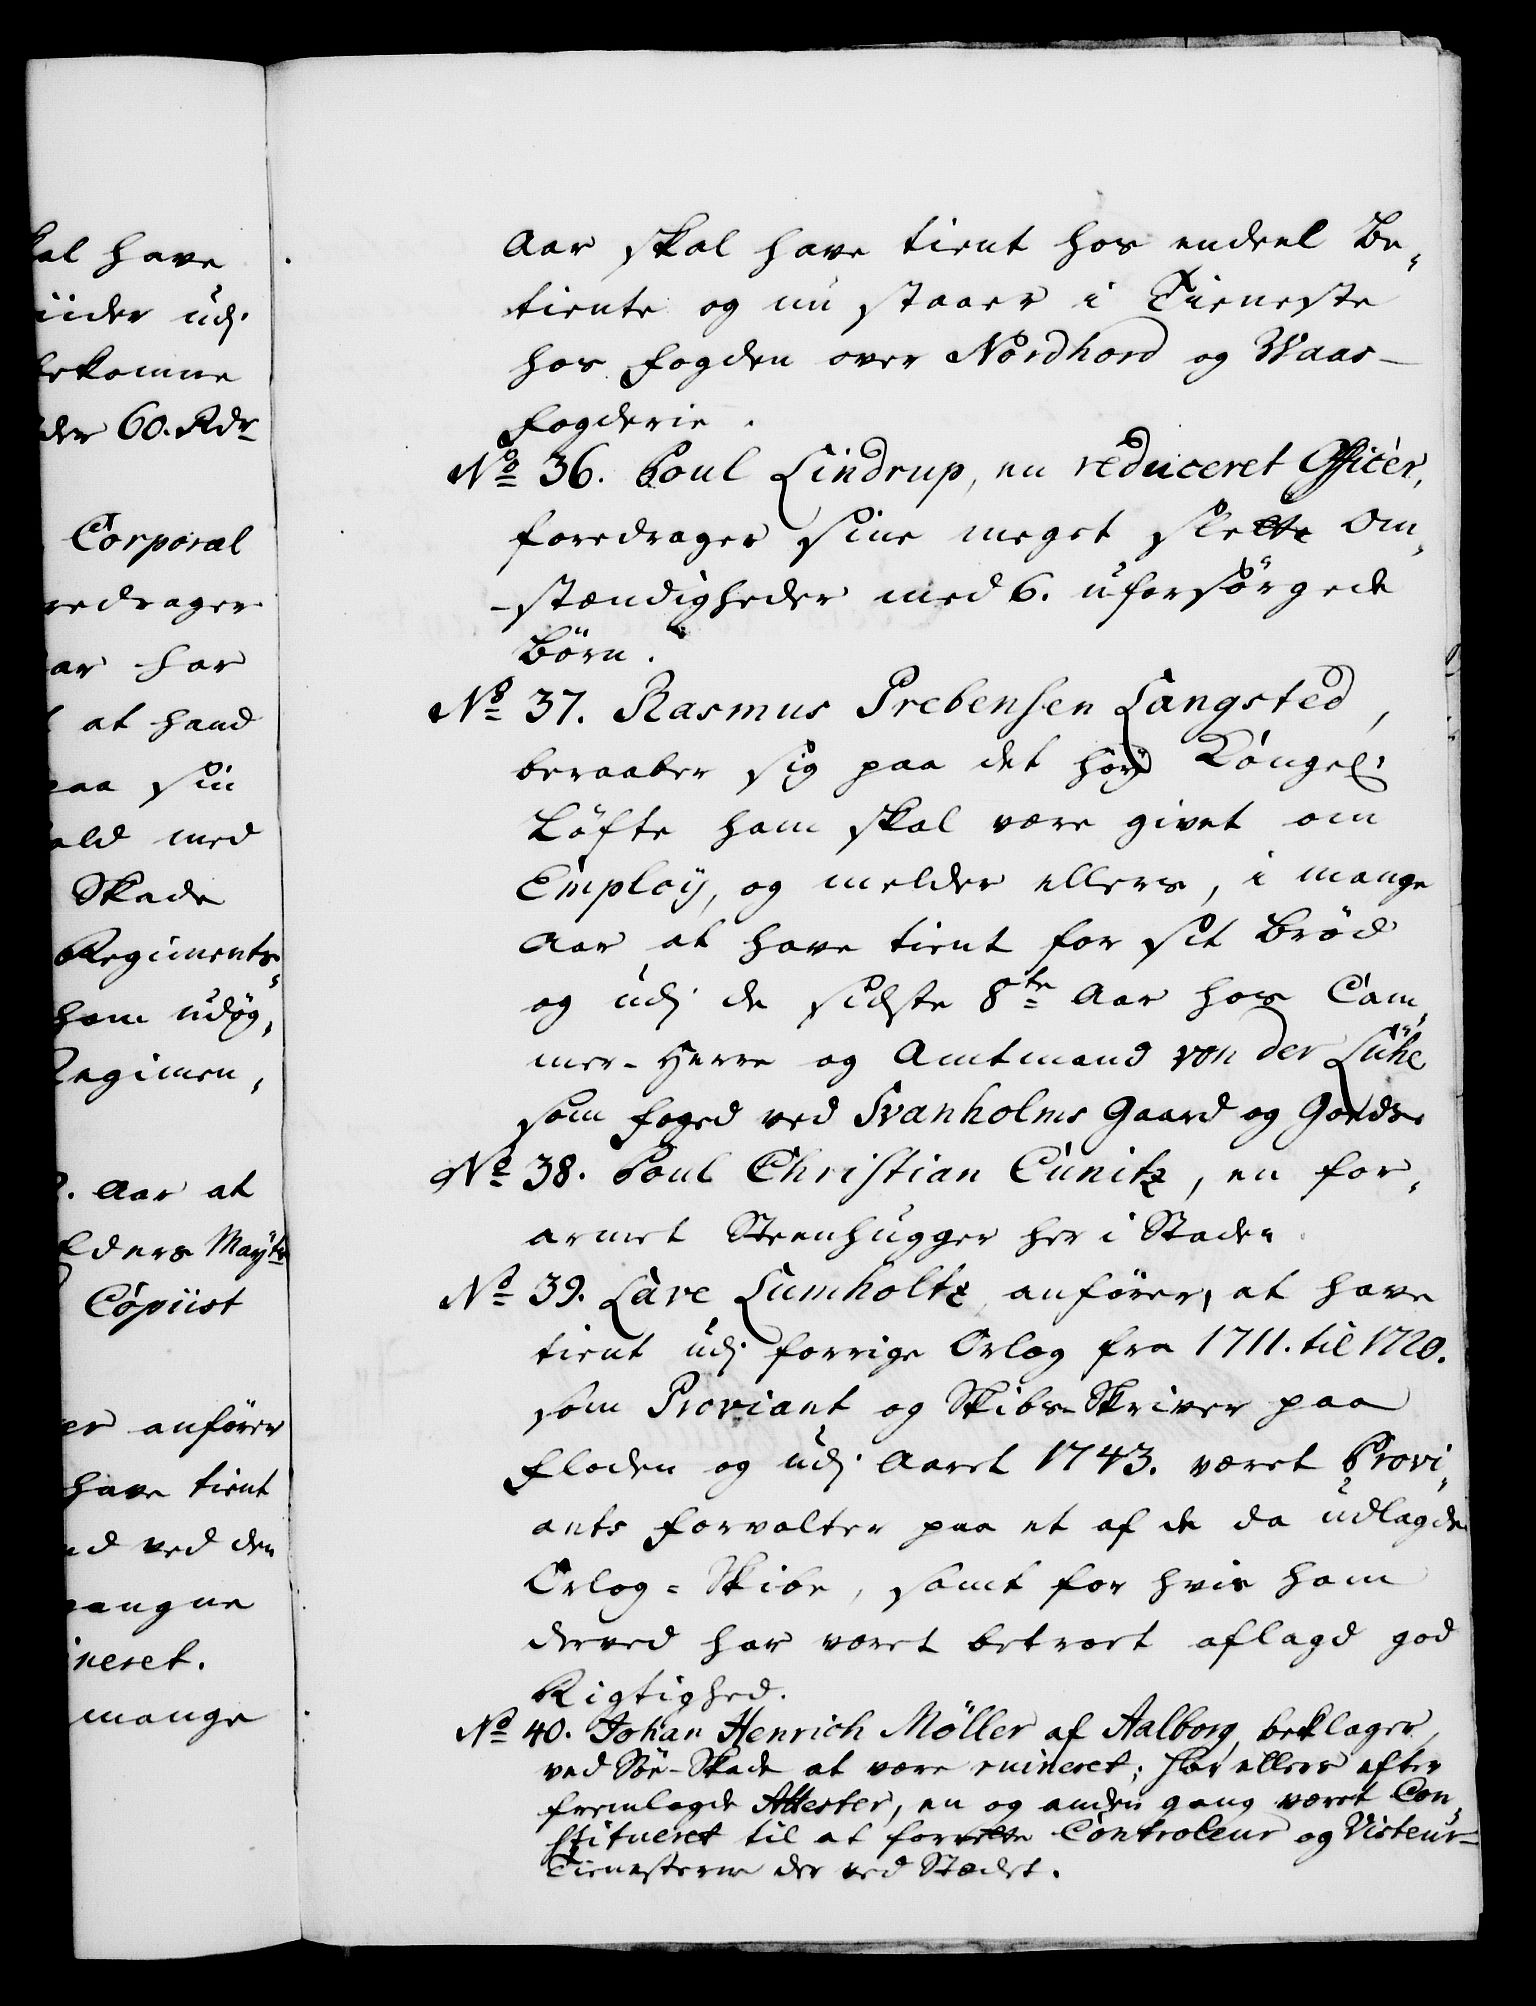 kal have
iider udj
bekomme
der 60. Rdr
Corporal
redrager
ar har
at hand
paa sin
ald med
Skade
Regiments-
ham udøg,
Regimen,
Aar at
Elders Mayts
Copiist
er anfører
have tient
nd ved den
gangne
ineret.
mange
Aar skal have tient hos endeel Be,
tiente og nu staaer i Tieneste
hos Fogden over Nordhord og Waas-
Fogderie.
No 36. Poul Lindrup, en reduceret Officer,
foredrager sine meget slette Om,
-stændigheder med 6. uforsørgede
Børn.
No 37. Rasmus Prebensen Langsted,
beraaber sig paa det høye Kongel:
Løfte ham skal være givet om
Employ, og melder ellers, i mange
Aar, at have tient for sit Brød
og udj de sidste 8te Aar hos Cam,
mer-Herre og Amtmand von der Lühe
som Foged ved Svanholms Gaard og Godse
No 38. Poul Christian Cunitz, en for,
armet Steenhugger her i Staden
No 39. Lare Lumholtz, anfører, at have
tient udj forrige Orlog fra 1711. til 1720.
som Proviant og Skibs-Skriver paa
Floden og udj Aaret 1743. været Provi,
ants Forvalter paa et af de da udlagde
Orlog-Skibe, samt for hvis ham
derved har været betroet aflagd god
Rigtighed.
No 40. Johan Henrich Möller af Aalborg, beklager,
ved Söe-Skade at være ruineret; har ellers efter
fremlagde Attester, en og anden gang været Con,
stitueret til at forrette Controleur og Visteur-
Tienesterne der ved Stædet.